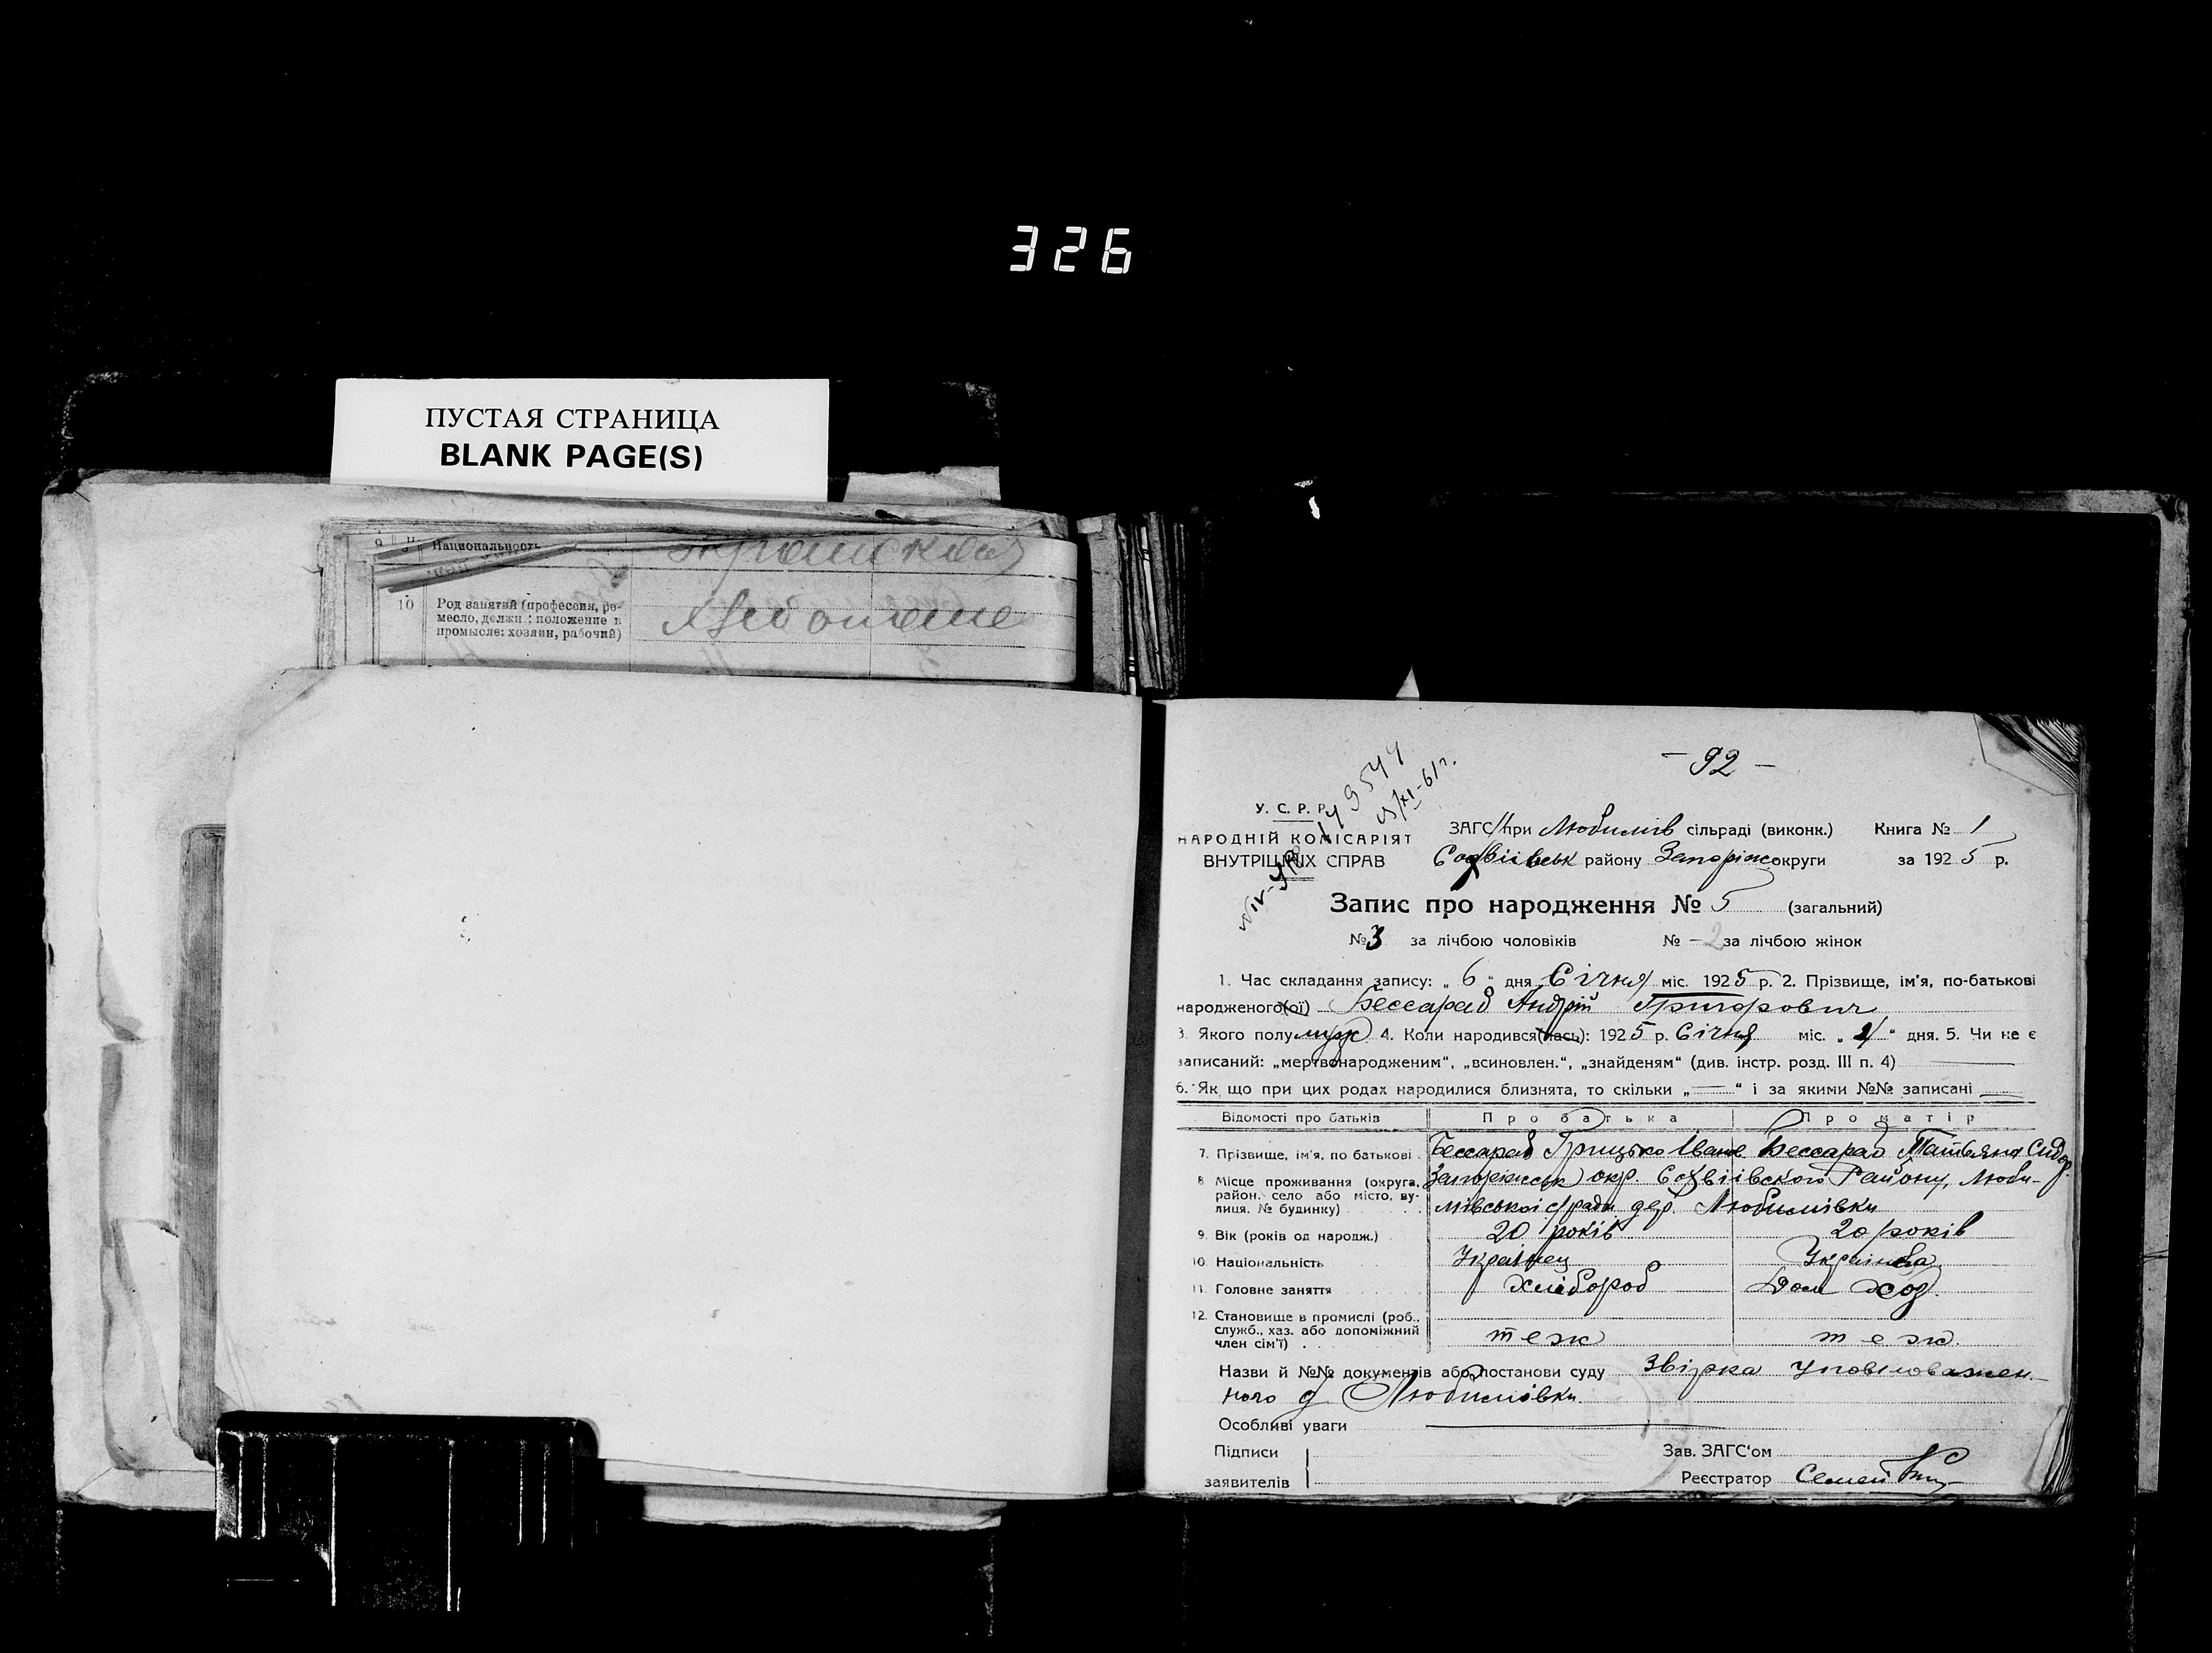 326
ПУСТАЯ СТРАНИЦА
BLANK PAGE(S)
9 Национальность
10 Род занятий (профессия, ре-
месло, должн.: положение в
промысле: хозяин, рабочий)
- 92 -
У. С. Р. Р.
НАРОДНІЙ КОМІСАРІЯТ
ВНУТРІШНІХ СПРАВ
ЗАГС при Любимів сільраді (виконк.) Книга № 1
району Запоріж округи за 1925 р.
Запис про народження № 5 (загальний)
№ 3 за лічбою чоловіків № - 2 за лічбою жінок
1. Час складання запису: „ 6 " дня Січня міс. 1925 р. 2. Прізвище, ім'я, по-батькові
народженого(ої) Бессараб Андрій Григорович
3. Якого полу муж. 4. Коли народився(лась): 1925 р. Січня міс. „ " дня. 5. Чи не є
записаний: „мертвонародженим“, „всиновлен.“, „знайденям“ (див. інстр. розд. III п. 4)
6. Як що при цих родах народилися близнята, то скільки „ — “ і за якими №№ записані —
Відомості про батьків Про батька Про матір
7. Прізвище, ім'я, по батькові Бессараб Грицько Іване Бессараб Татьяна Сидор.
8 Місце проживання (округа, район, село або місто, ву-лиця, № будинку) Запоріжськ окр. Району, Люби-
мівської с/ради дер. Любимівки
9. Вік (років од народж.) 20 років 20 років
10. Національність Українец Українка
11. Головне заняття Хлібороб Дом хоз.
12. Становище в промислі (роб., служб., хаз. або допоміжний член сім'ї) теж теж.
Назви й №№ документів або постанови суду Звірка уповноважен-
ного д Любимівки.
Особливі уваги
Підписи Зав. ЗАГС'ом
заявителів Реєстратор